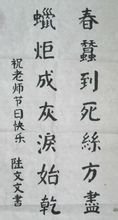 春蠶到死絲方盡
蠟炬成灰淚始乾
祝老师节日快乐
陆文文書